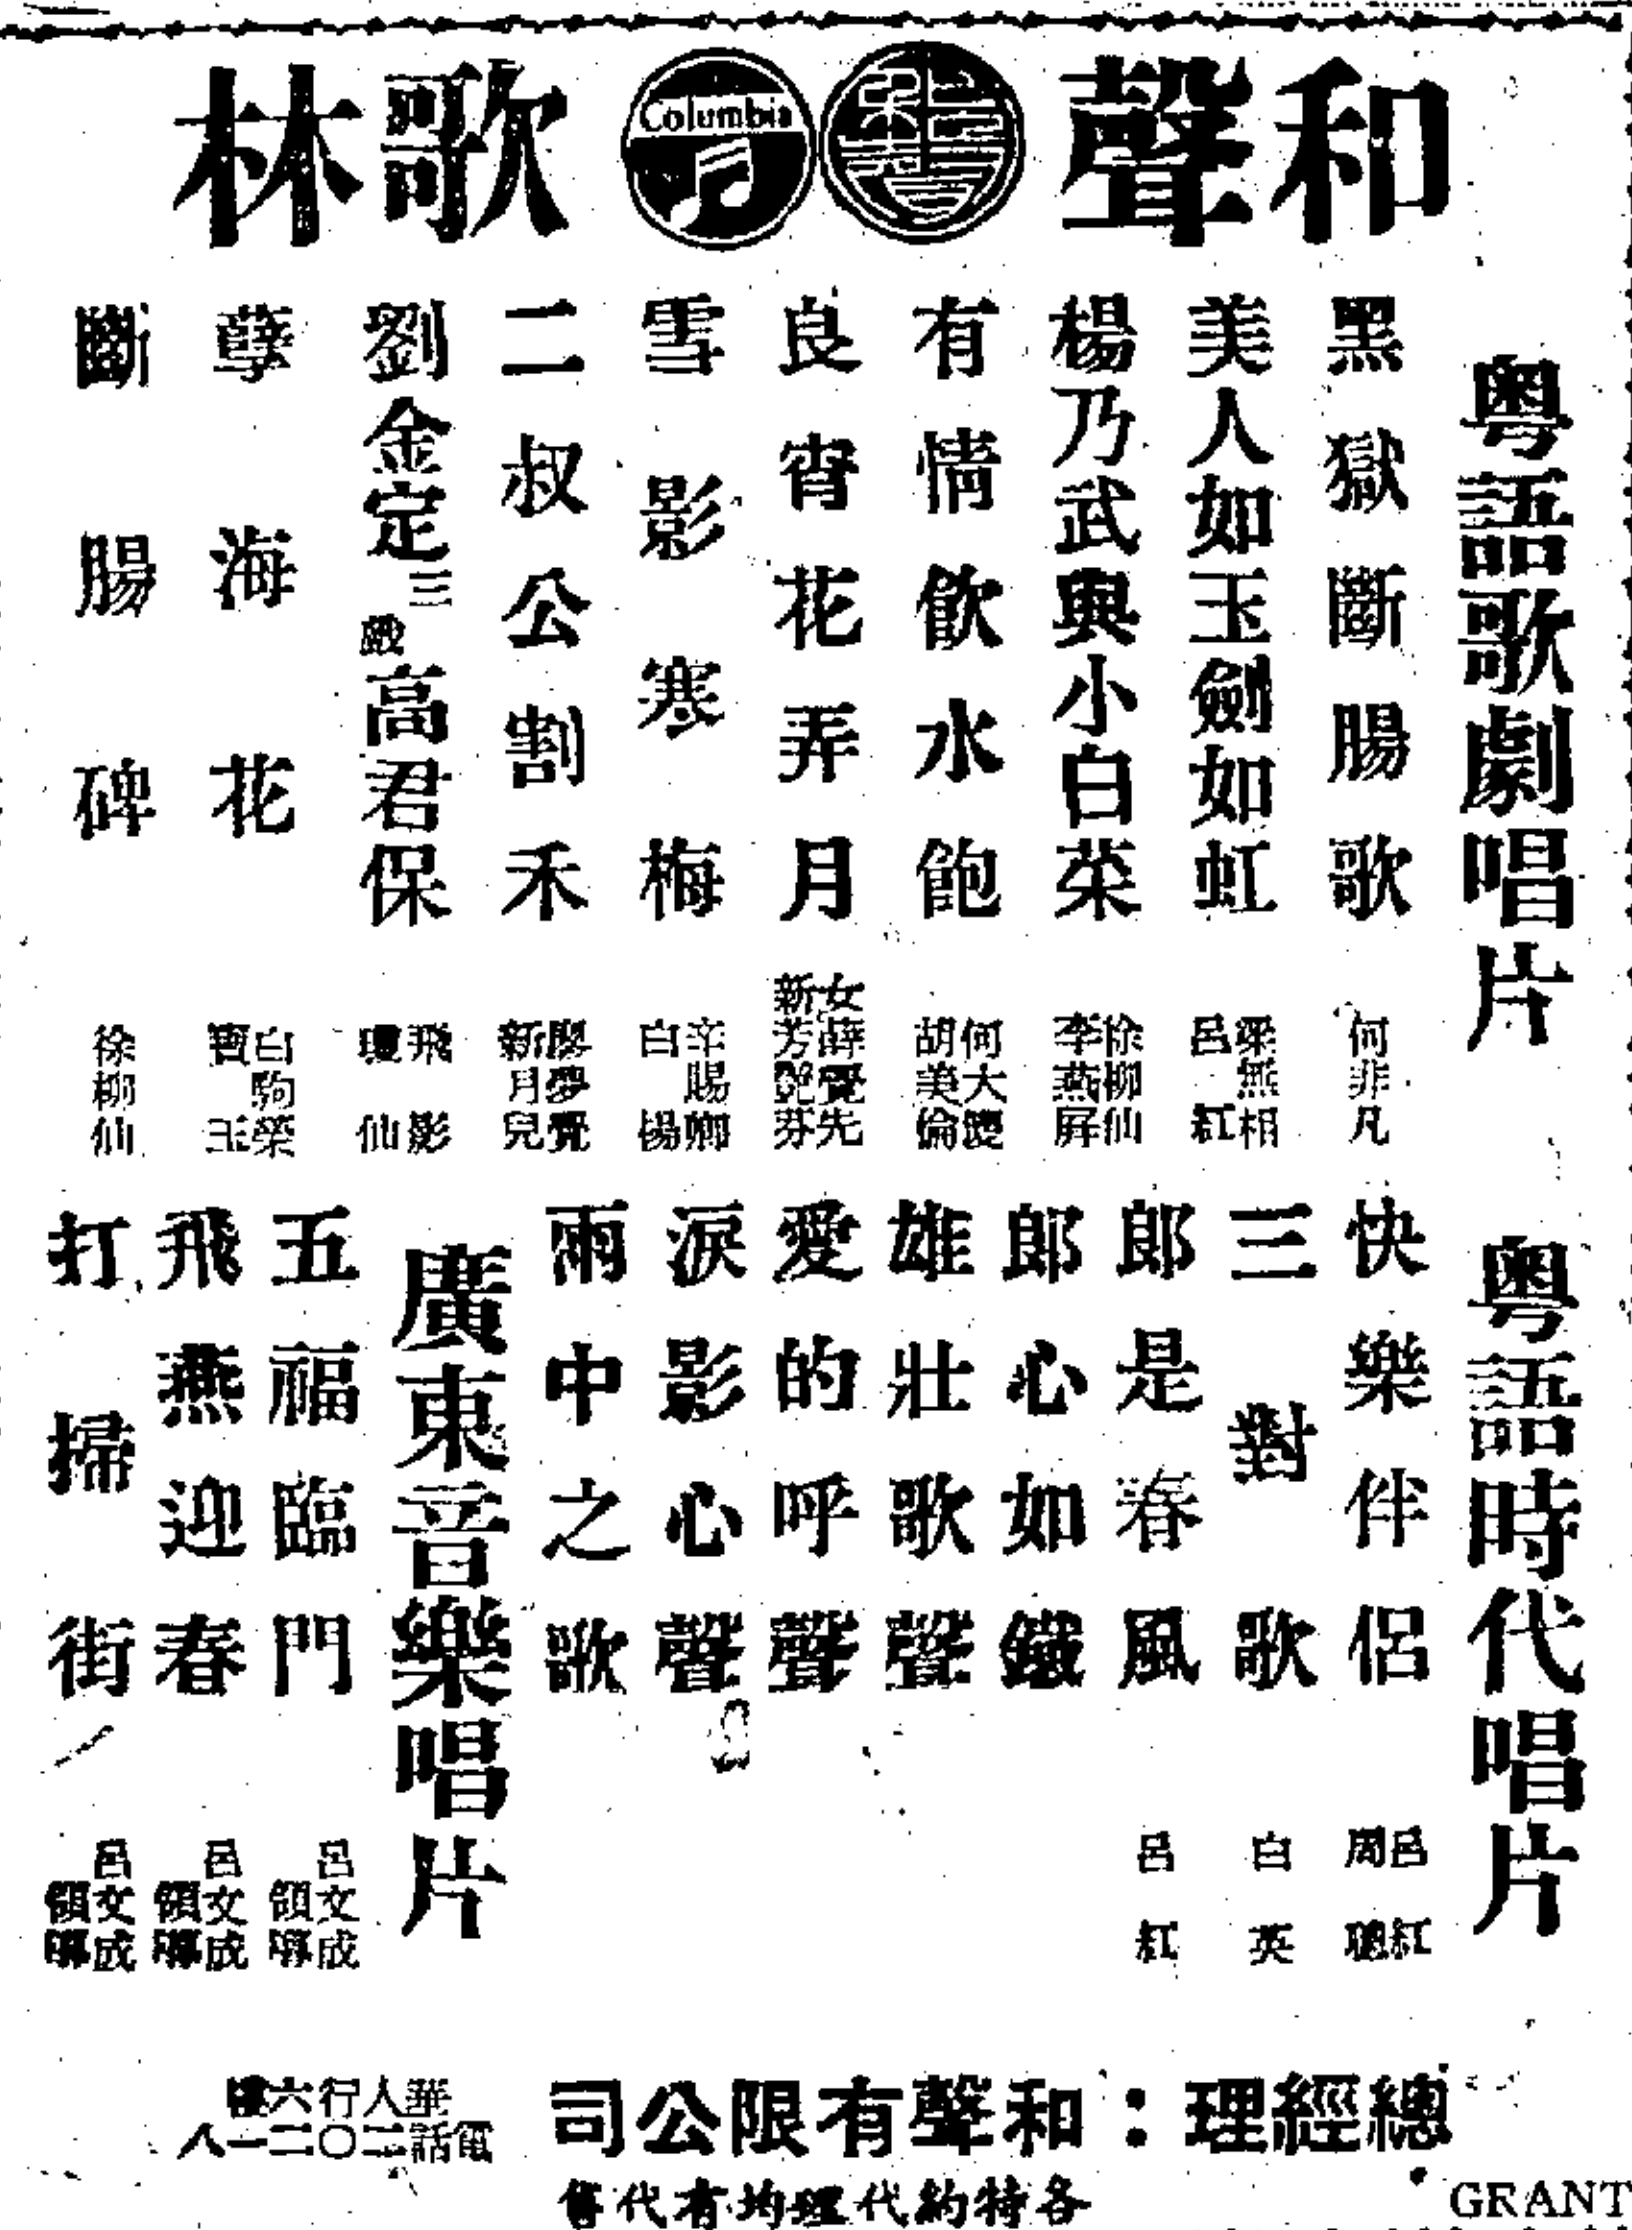 和聲歌林
Columbia
粤語歌劇唱片
黑獄斷腸歌 何非凡
美人如玉劍如虹 梁無相 呂紅
楊乃武與小白菜 徐柳仙 李燕屏
有情飲水飽 何大傻 胡美倫
良宵花弄月 女薛覺先 新芳艷芬
雪影寒梅 辛賜卿 白楊
二叔公割禾 廖夢覺 新月兒
劉金定三戲高君保 飛影 瓊仙
孽海花 白駒榮 寶玉
斷腸碑 徐柳仙
粤語時代唱片
快樂伴侶 呂紅 周聰
三對歌 白英
郎是春風 呂紅
郎心如鐵
雄壯歌聲
愛的呼聲
淚影心聲
雨中之歌
廣東音樂唱片
五福臨門 呂文成領導
飛燕迎春 呂文成領導
打掃街 呂文成領導
總經理：和聲有限公司
華人行六樓
電話二〇二一八
各特約代理均有代售
GRANT